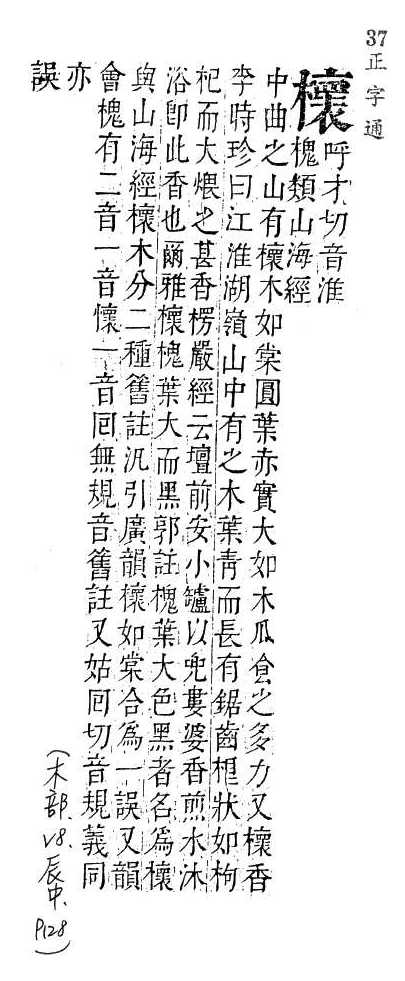 37
正字通
櫰
呼才切音淮
槐類山海經
中曲之山有櫰木如棠圓葉赤實大如木瓜食之多力又櫰香
李時珍曰江淮湖嶺山中有之木葉靑而長有鋸齒㮇狀如枸
杞而大煨之甚香楞嚴經云壇前安小罏以兜婁婆香煎水沐
浴卽此香也爾雅櫰槐葉大而黑郭註槐葉大色黑者名爲櫰
與山海經櫰木分二種舊註汎引廣韻櫰如棠合爲一誤又韻
會槐有二音一音懷一音囘無規音舊註又姑囘切音規義同
亦
誤
(木部.v8.辰中.P128)